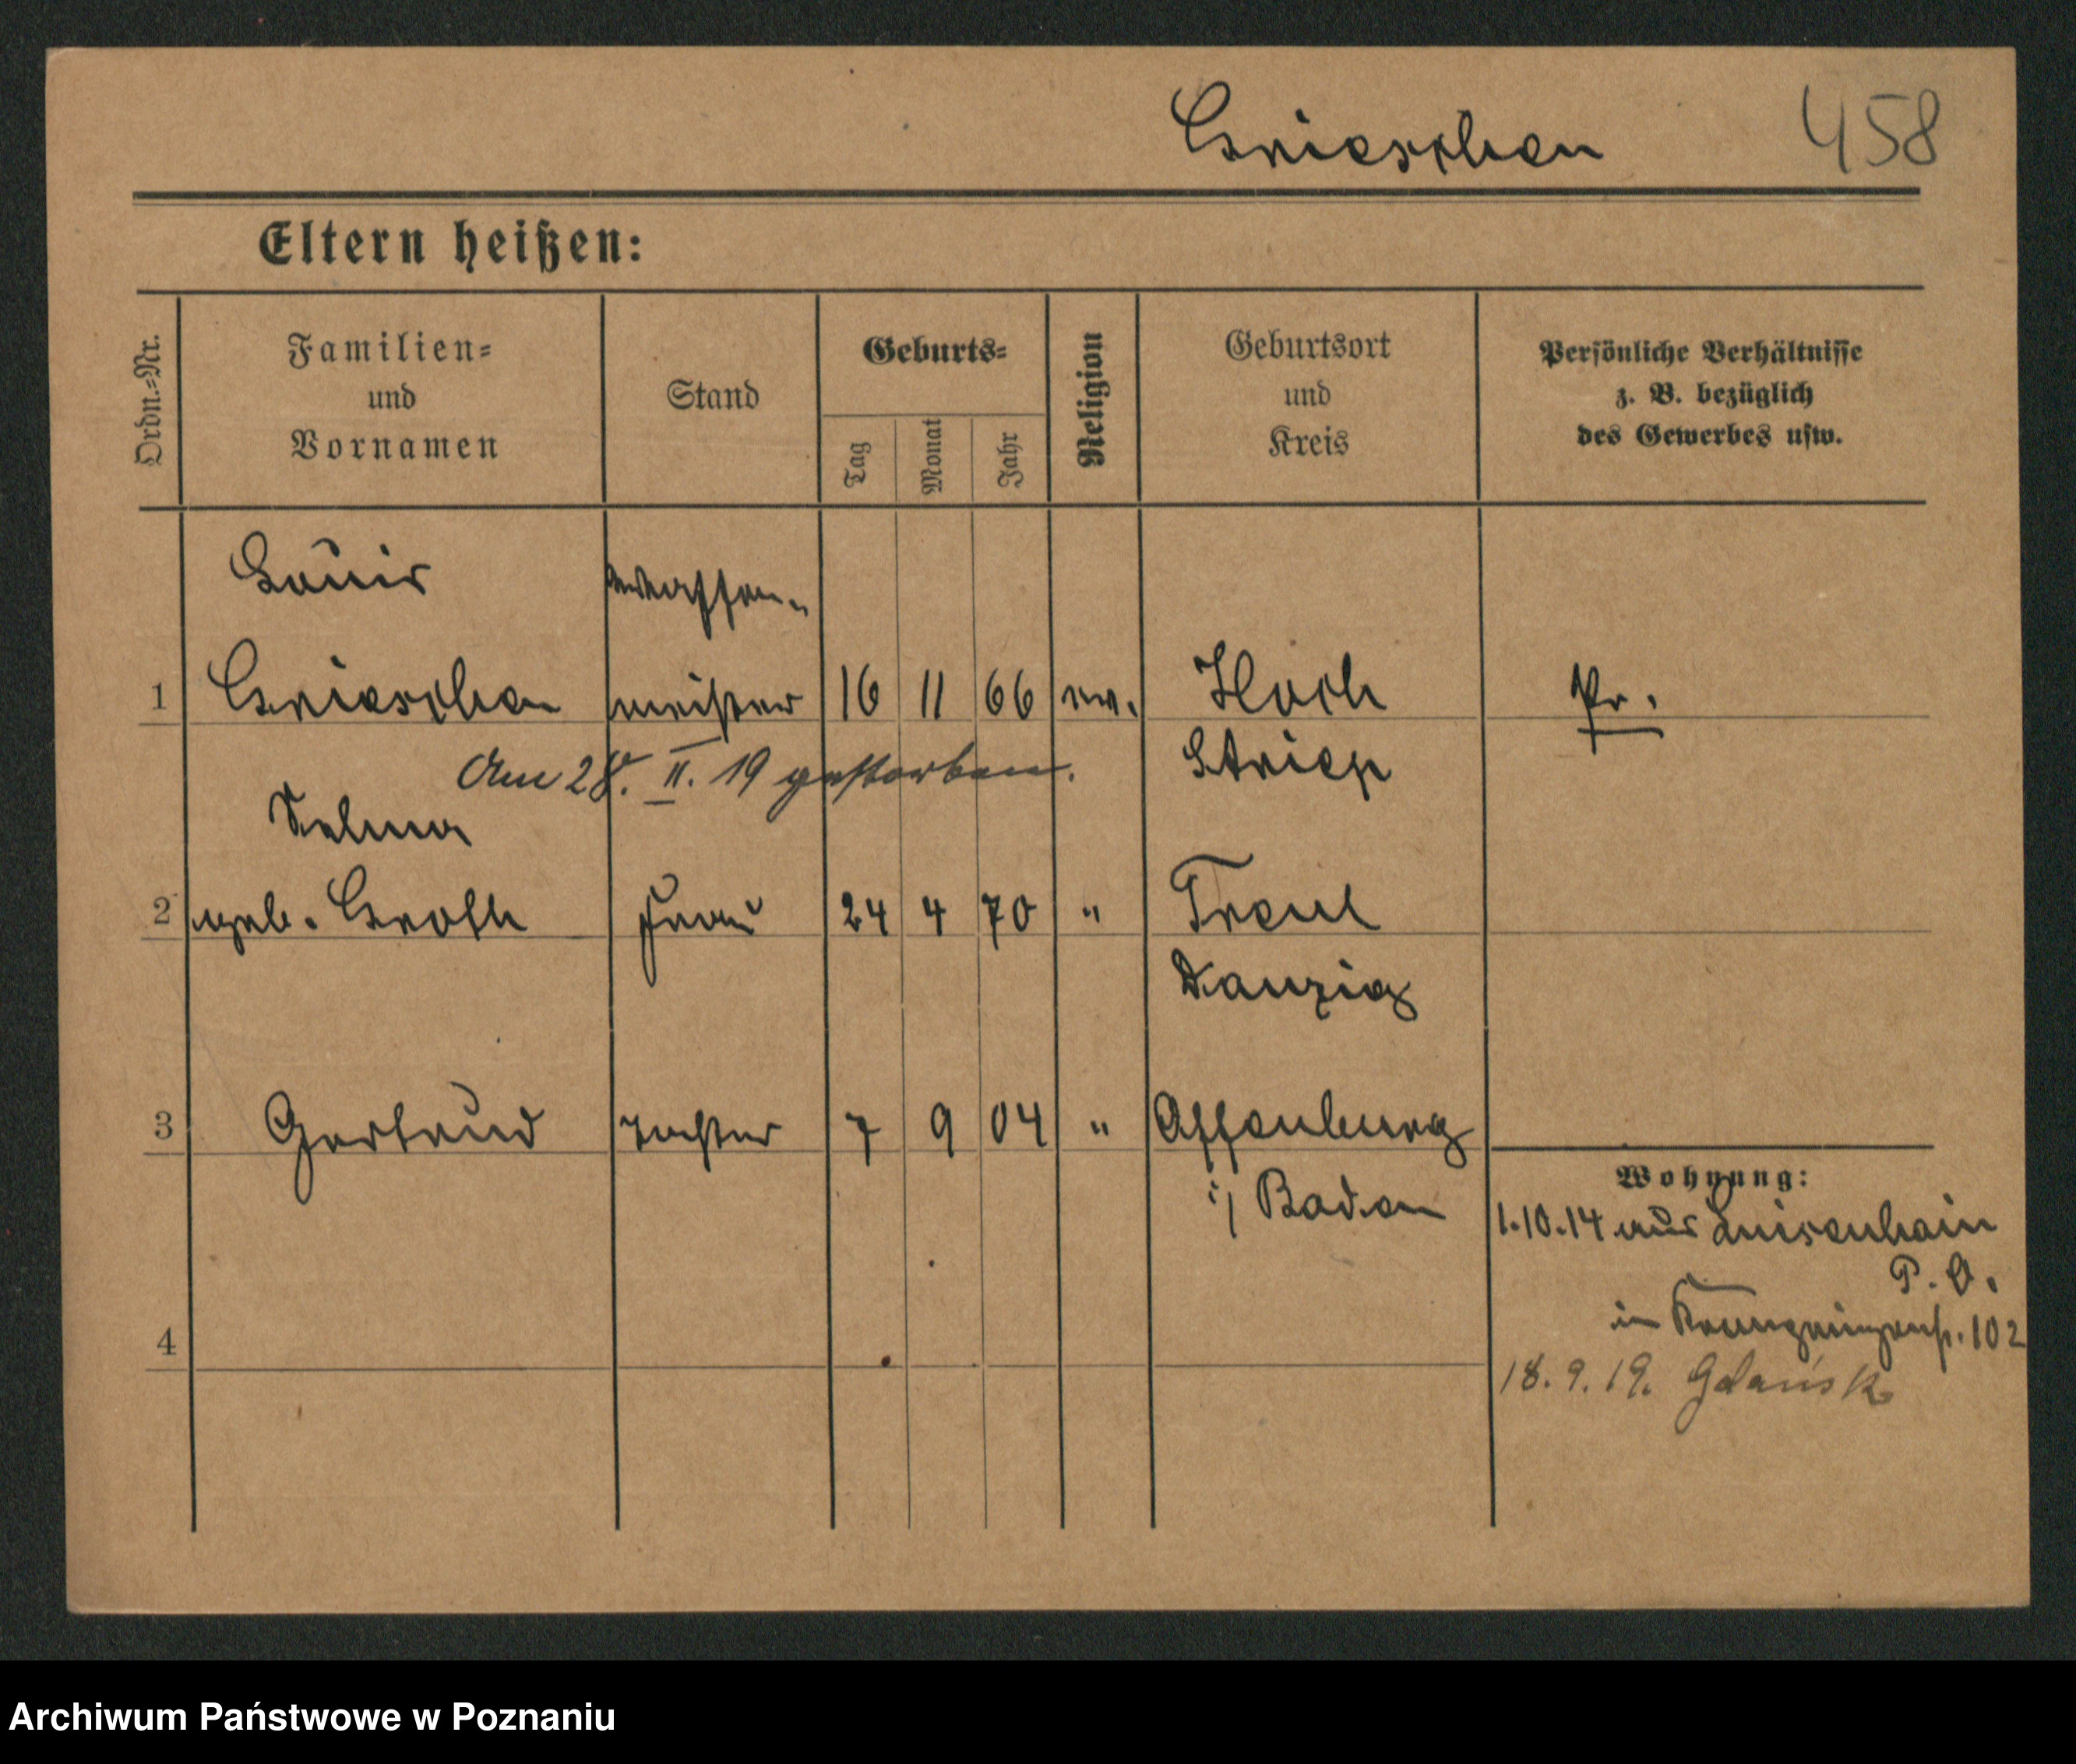 Grieschen 458
Eltern heißen:
Ordn.=Nr.
Familien=
und
Vornamen
Stand
Geburts=
Tag
Monat
Jahr
Religion
Geburtsort
und
Kreis
Persönliche Verhältnisse
z. B. bezüglich
des Gewerbes usw.
Louis Waffen-
1 Grieschen meister 16 11 66 ev. Pr.
Am 28. II. 19 gestorben.
Selma
2 geb. Groth Frau 24 4 70 "
Danzig
3 Gertrud Tochter 7 9 04 " Offenburg
i/ Baden
Wohnung:
1.10.14 aus Luisenhain
P. O.
in Kronprinzenst. 102
4
18. 9. 19. Gdańsk
Archiwum Państwowe w Poznaniu